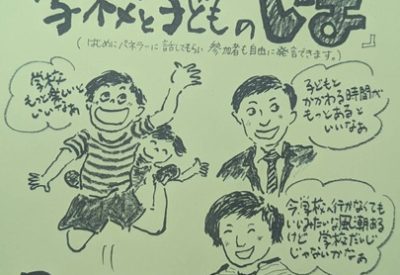 学校と子どもの いま』
(はじめにパネラーに話してもらい 参加者も自由に発言できます。)
学校
もっと楽しいと
いいなぁ
子どもと
かかわる時間が
もっとあると
いいなぁ
今、学校へ行かなくても
いいみたいな風潮ある
けど 学校だいじ
じゃないかなぁ